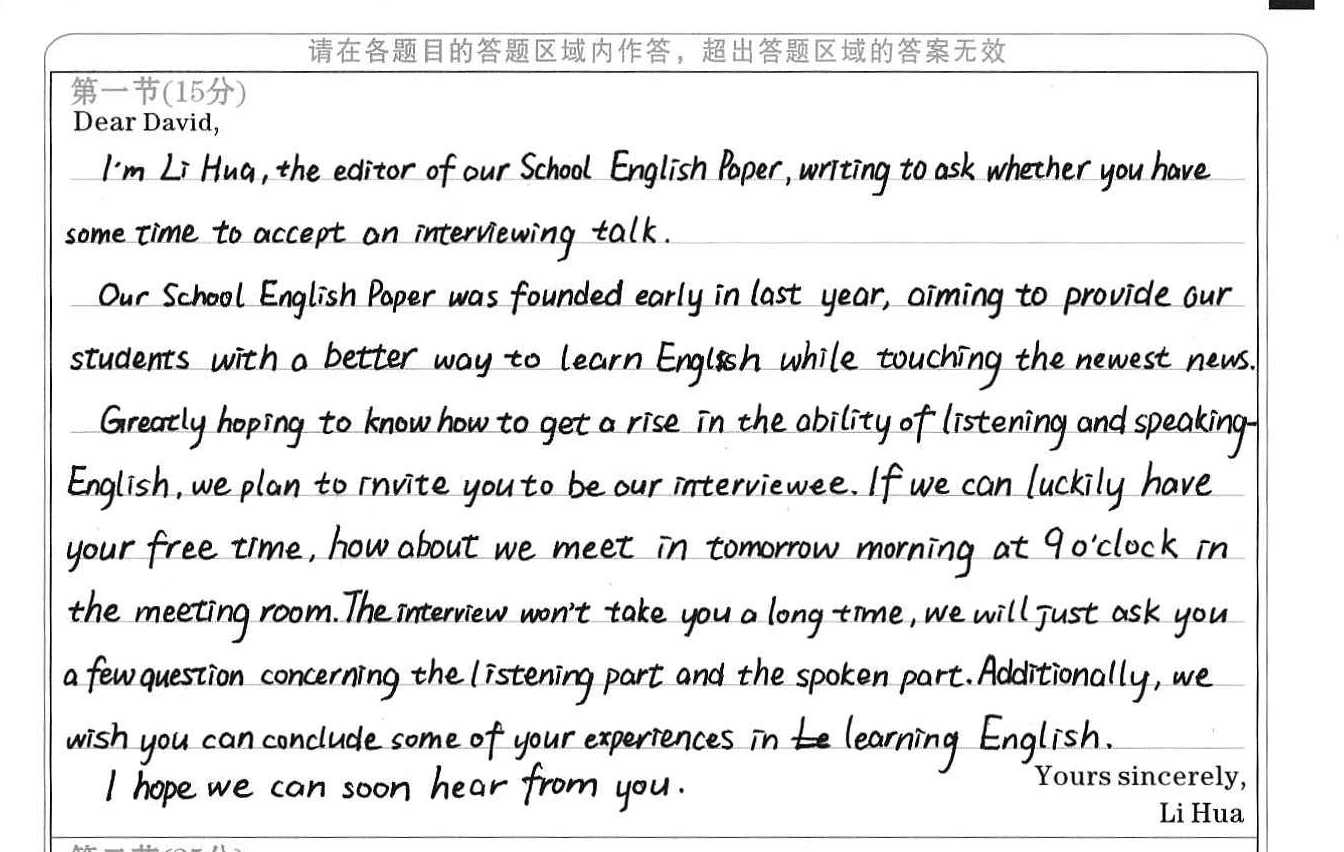 请在各题目的答题区域内作答，超出答题区域的答案无效
第一节(15分)
Dear David,
I'm Li Hua, the editor of our School English Paper, writing to ask whether you have
some time to accept an interviewing talk.
Our School English Paper was founded early in last year, aiming to provide our
students with a better way to learn English while touching the newest news.
Greatly hoping to know how to get a rise in the ability of listening and speaking-
English, we plan to invite you to be our interviewee. If we can luckily have
your free time, how about we meet in tomorrow morning at 9 o'clock in
the meeting room. The interview won't take you a long time, we will just ask you
a few question concerning the listening part and the spoken part. Additionally, we
wish you can conclude some of your experiences in learning English.
I hope we can soon hear from you.
Yours sincerely,
Li Hua